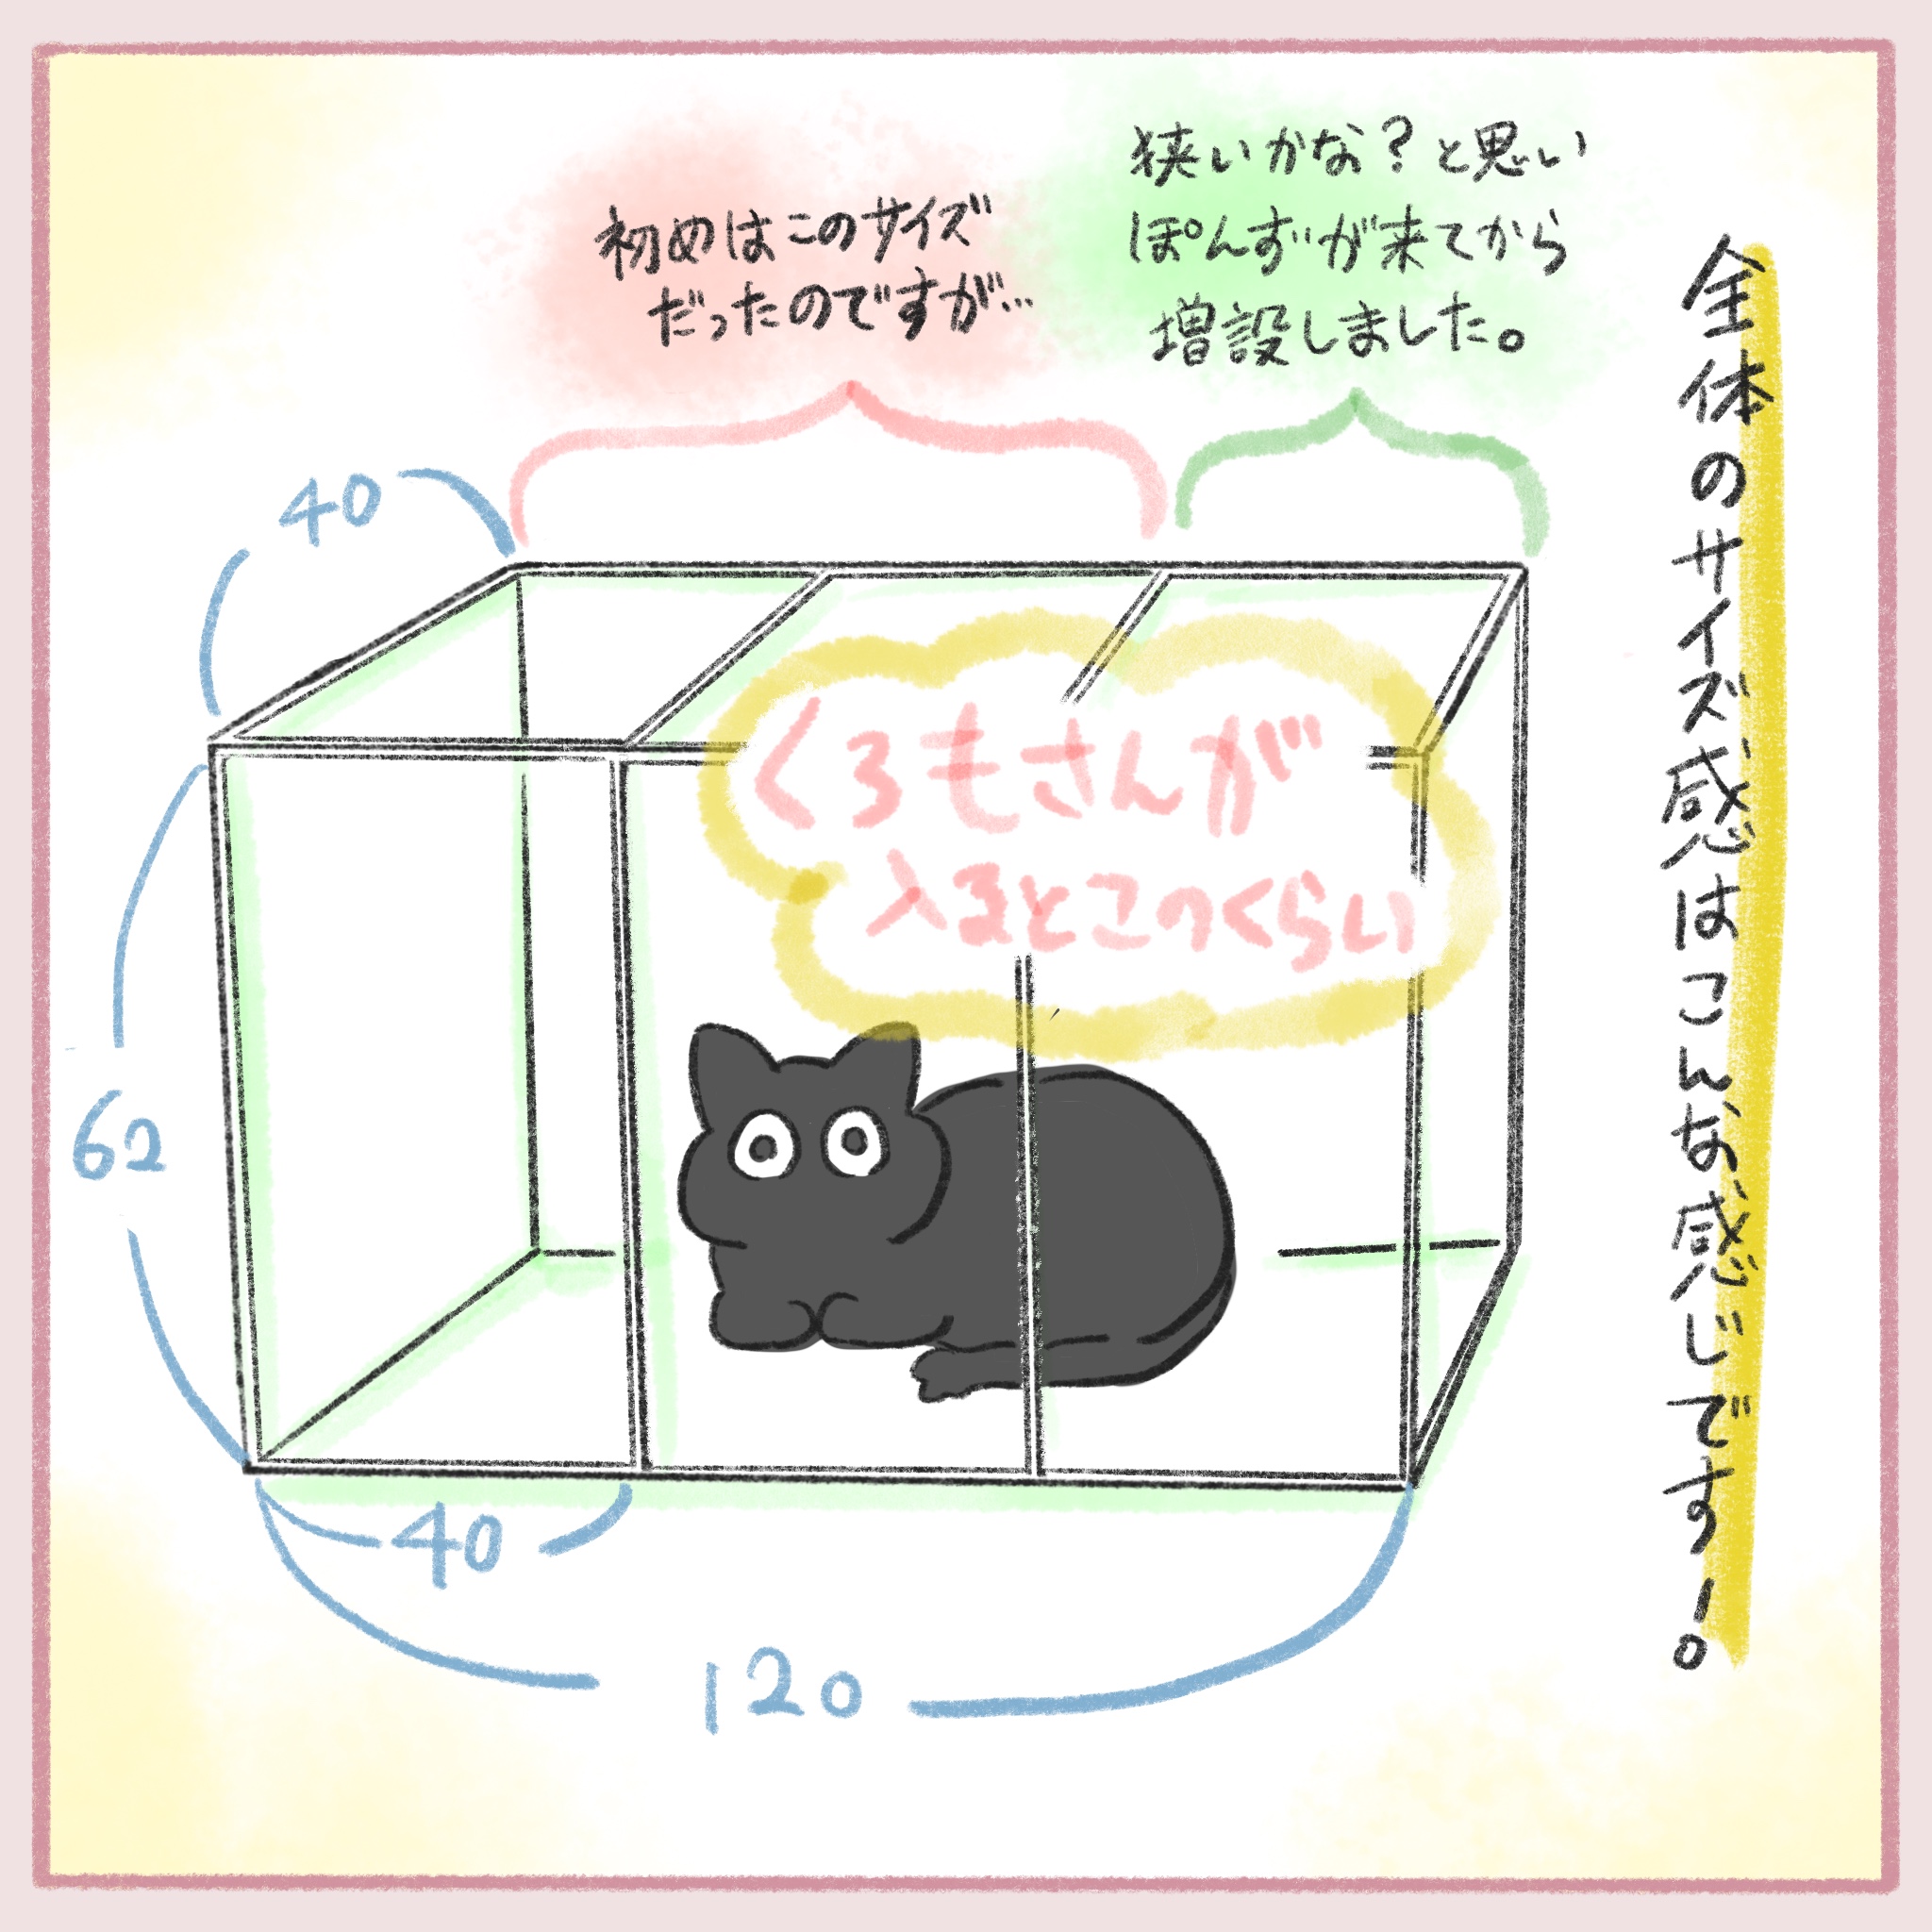 全体のサイズ感はこんな感じです!
狭いかな?と思い
ぽんずが来てから
増設しました。
初めはこのサイズ
だったのですが…
40
くろもさんが
入るとこのくらい
62
40
120